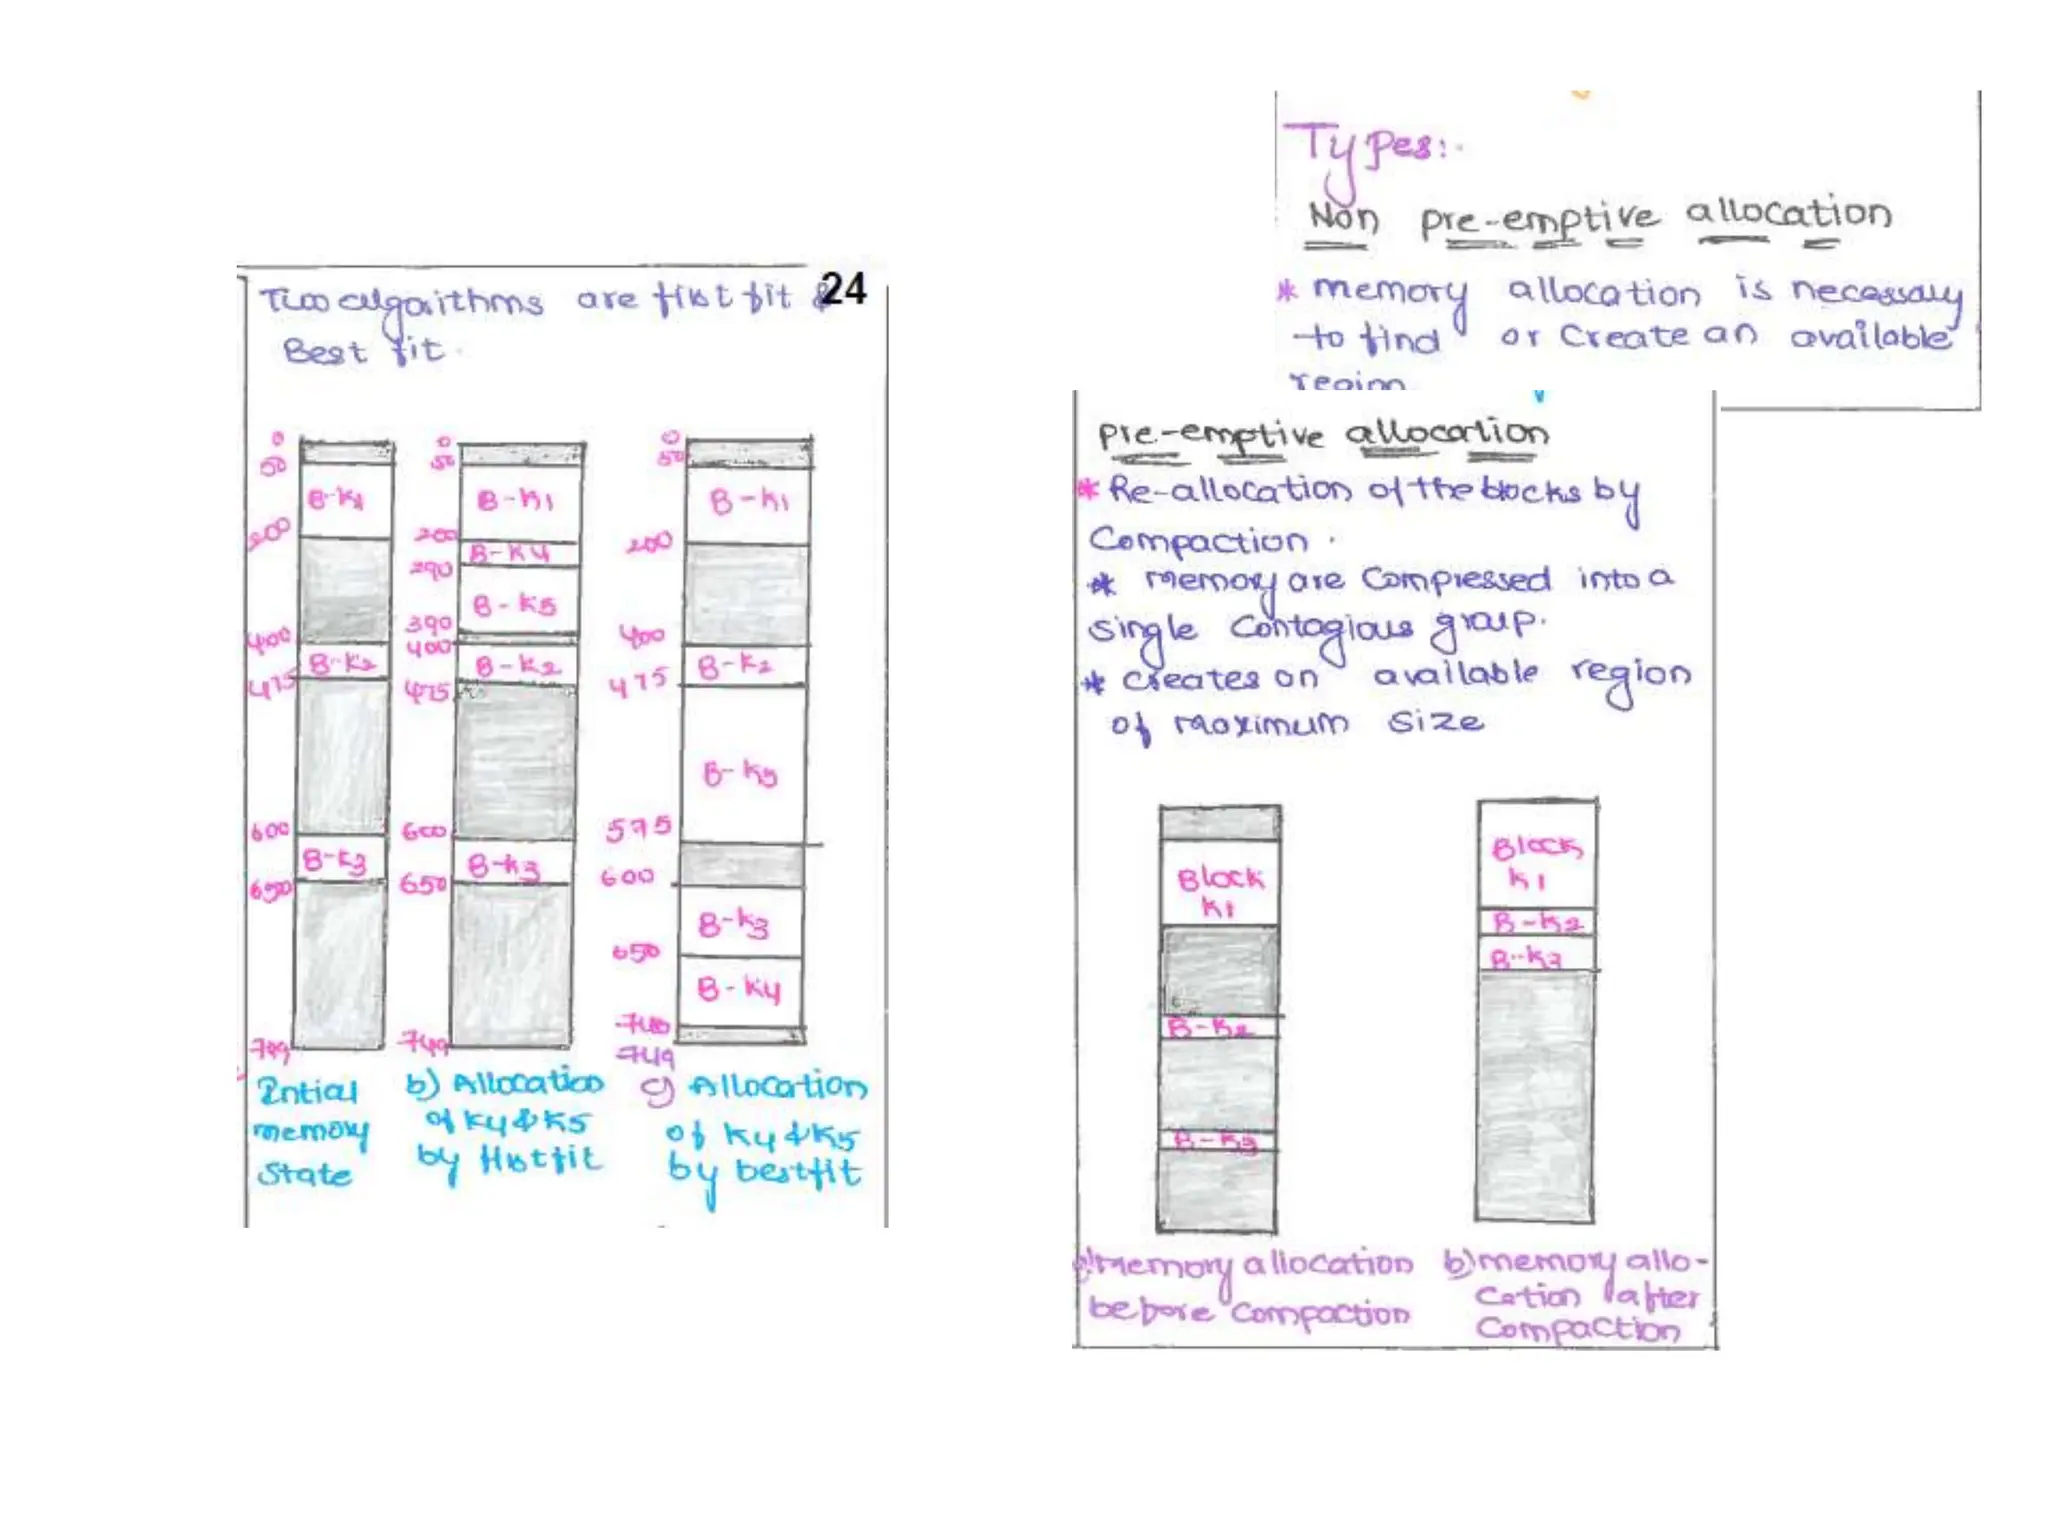 24
Two algorithms are first fit &
Best fit.
0
50
B-K1
200
400
B-K2
475
600
B-K3
650
749
Intial
memory
State
0
50
B-K1
200
B-K4
290
B-K5
390
400
B-K2
475
600
B-K3
650
749
b) Allocation
of K4 & K5
by first fit
0
50
B-K1
200
400
B-K2
475
B-K5
575
600
B-K3
650
B-K4
740
749
c) Allocation
of K4 & K5
by bestfit
Types:-
Non pre-emptive allocation
* memory allocation is necessary
to find or Create an available
region
pre-emptive allocation
* Re-allocation of the blocks by
Compaction.
* memory are Compressed into a
single Contagious group.
* creates on available region
of maximum Size
Block
K1
B-K2
B-K3
a) memory allocation
before Compaction
Block
K1
B-K2
B-K3
b) memory allo-
cation after
Compaction